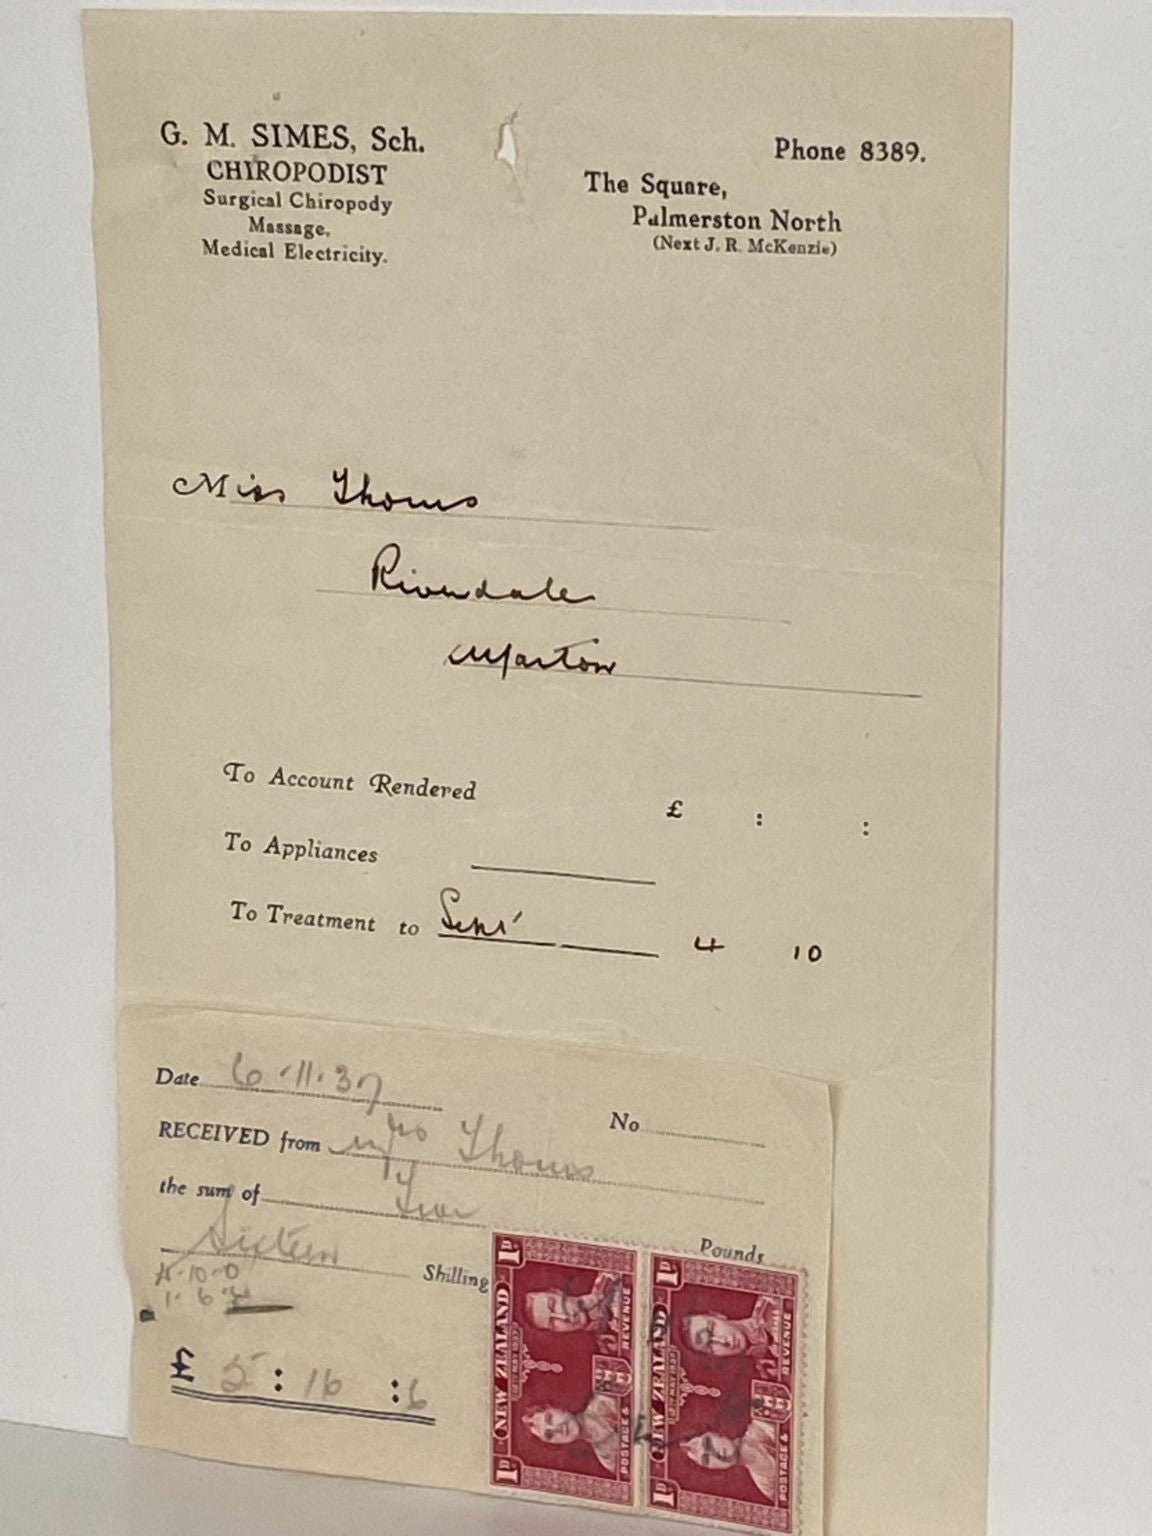 G. M. SIMES, Sch.
CHIROPODIST
Surgical Chiropody
Massage,
Medical Electricity.
Phone 8389.
The Square,
Palmerston North
(Next J. R. McKenzie)
Miss Thoms
Riverdale
Marton
To Account Rendered £ : :
To Appliances
To Treatment to Sept 4 10
Date 6.11.37
No
RECEIVED from Thoms
the sum of Five
Pounds
Sixteen Shilling
4-10-0
1. 6
£ 5 : 16 : 6
1D NEW ZEALAND 12TH MAY 1937 POSTAGE & REVENUE 1D
1D NEW ZEALAND 12TH MAY 1937 POSTAGE & REVENUE 1D